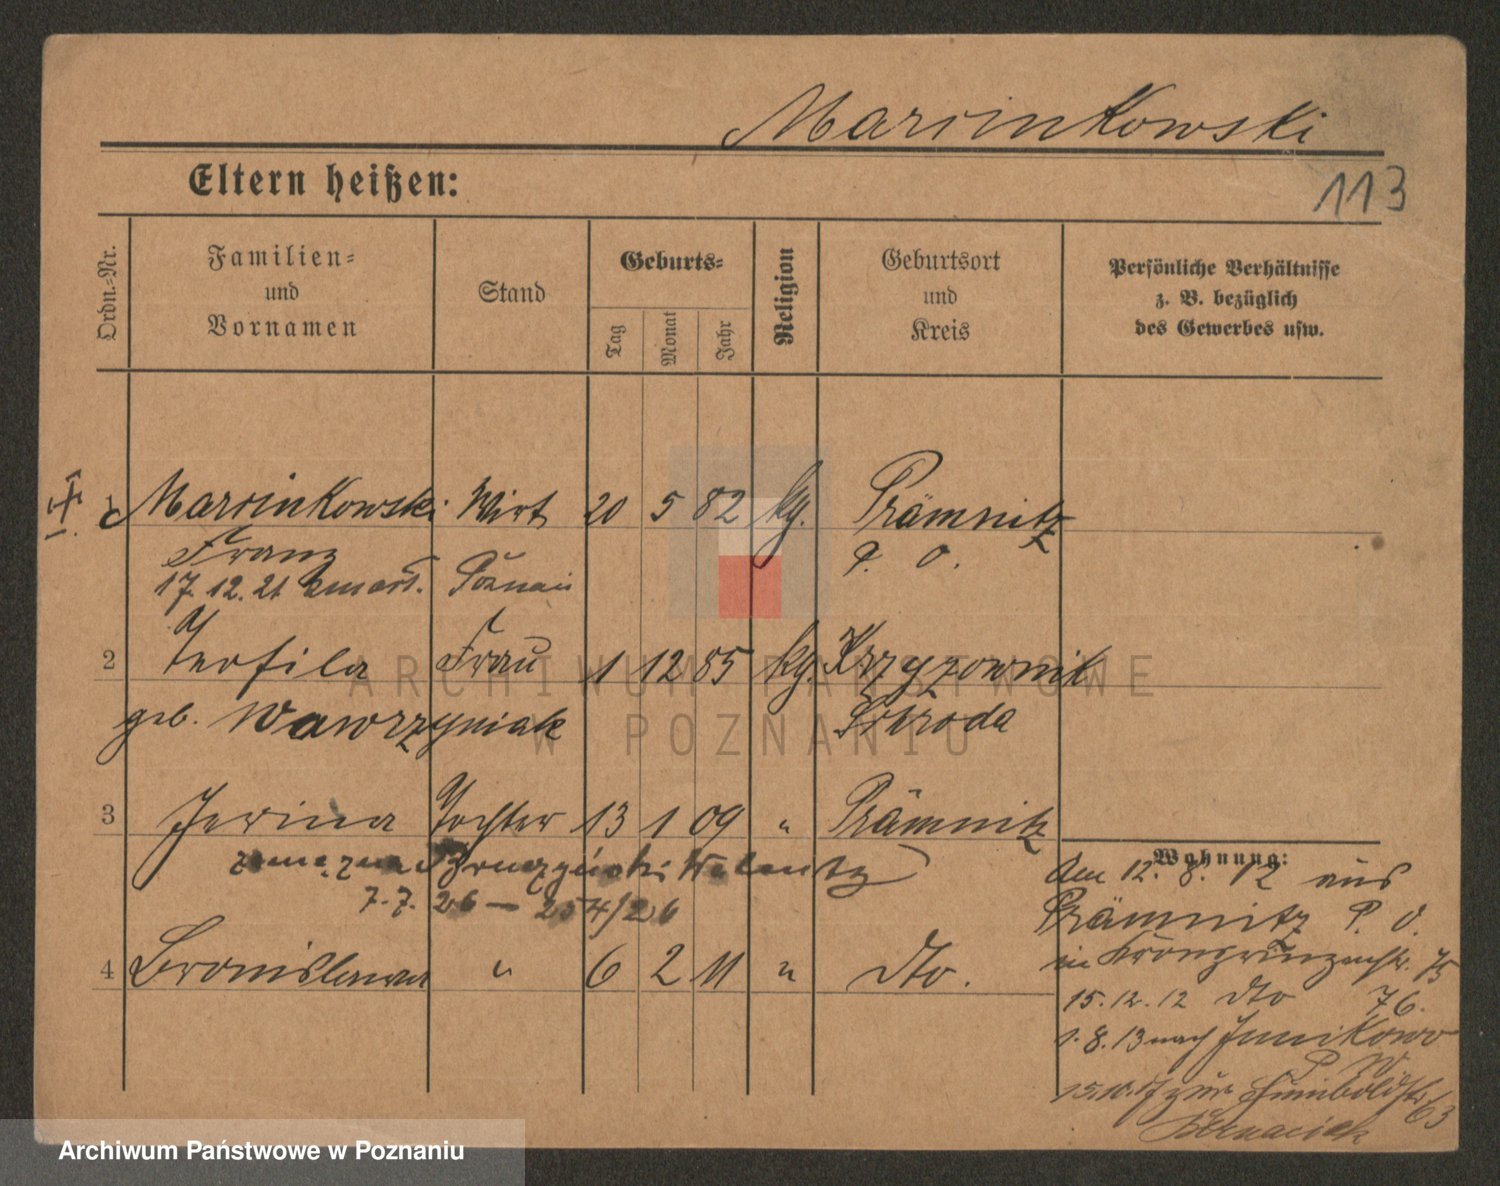 Marcinkowski
Eltern heißen:
113
Ordn.-Nr.
Familien-
und
Vornamen
Stand
Geburts-
Tag
Monat
Jahr
Religion
Geburtsort
und
Kreis
Persönliche Verhältnisse
z. B. bezüglich
des Gewerbes usw.
1 Marcinkowski Wirt 20 5 82 kg. Prämnitz
Franz P. O.
17. 12. 21 zmarł. Poznań
2 Teofila Frau 1 12 85 kg. Krzyzownik
geb. Wawrzyniak Schroda
3 Tochter 13 1 09 " Prämnitz
7. 7. 26 — 254/26
4 Bronislawa " 6 2 11 " dto.
Wohnung:
Am 12. 8. 12 aus
Prämnitz P. O.
in Kronprinzenstr. 75
15. 12. 12 dto 76.
1. 8. 13 nach Junikowo
P. W
15. 10. 17 zur Humboldstr 63
ARCHIWUM PAŃSTWOWE
W POZNANIU
Archiwum Państwowe w Poznaniu